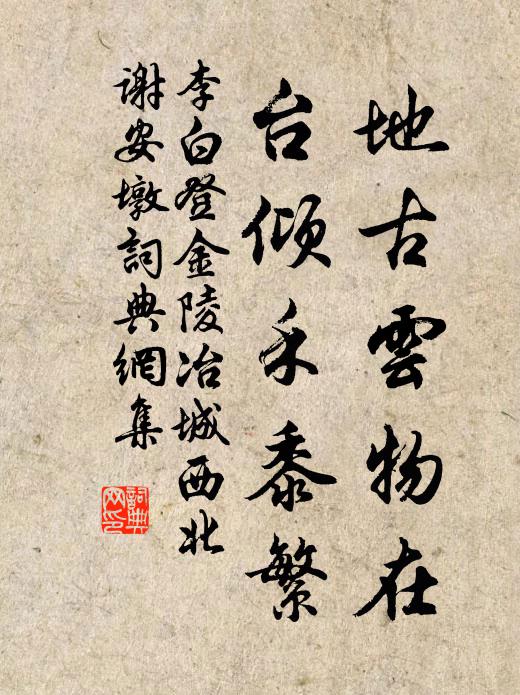 地古雲物在
台傾禾黍繁
李白登金陵冶城西北
謝安墩詞典網集
詞典
网印